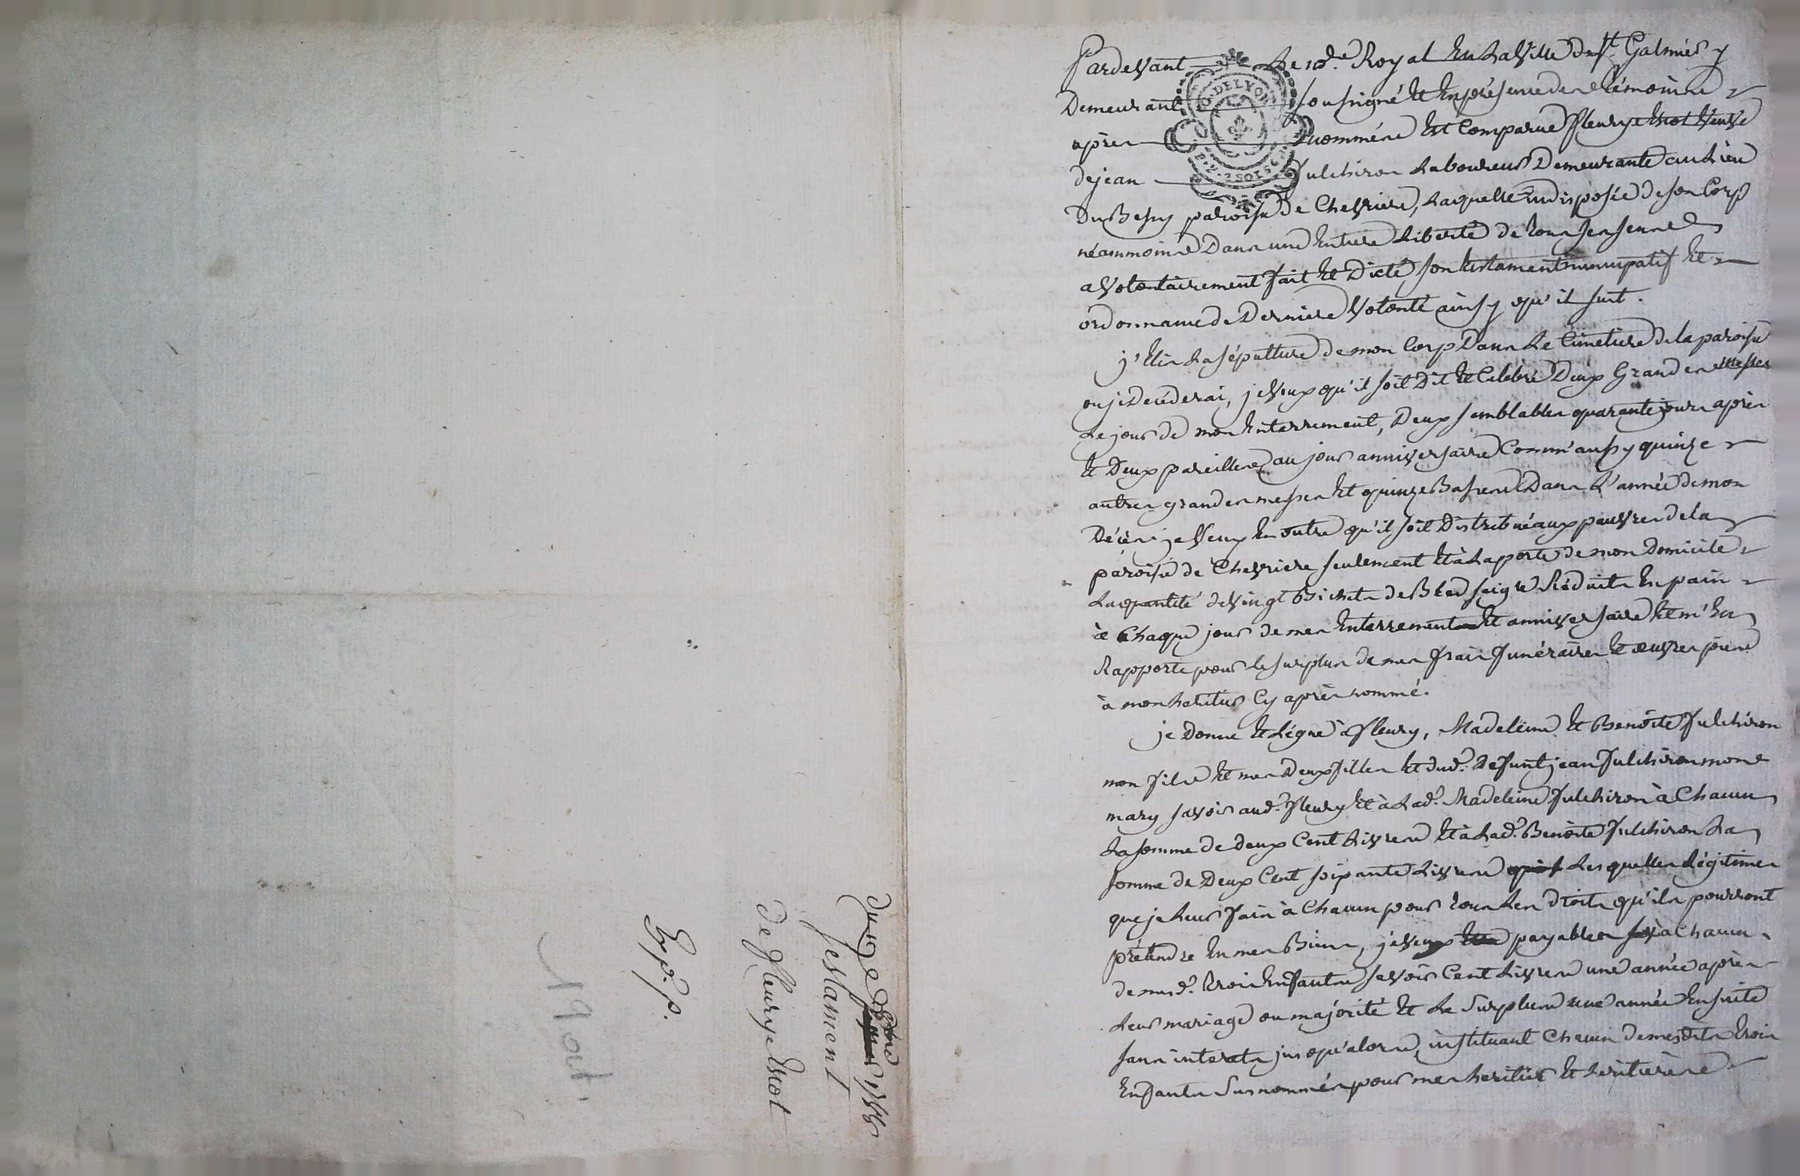 Pardevant Le no.re Royal En La Ville de St Galmier y
Demeurant soussigné Et En présence des témoins
après nommés Est Comparue fleurye Escot Veuve
de jean fulchiron Laboureur Demeurante au Lieu
Du Bessy paroisse de Chevriere, Laquelle indisposée de son Corp
néammoins Dans une Entiere Liberté de tous ses sens
a Volontairement fait Et Dicté son testament nuncupatif Et
ordonnance de Derniere Volonté ainsy qu'il suit.
j'Elis La sépulture de mon Corp Dans Le Cimetiere de la paroisse
ou je Decéderai, je Veux qu'il soit Dit Et Célébré Deux Grandes messes
Le jour de mon Enterrement, Deux semblables quarante jours après
Et Deux pareilles au jour anniversaire Comm'aussy quinze
autres grandes messes Et quinze Basses Dans L'année de mon
Décès; je Veux En outre qu'il soit Distribué aux pauvres de la
paroisse de Chevriere seulement Et à La porte de mon Domicile
La quantité de Vingt Bichets de Bled seigle Réduits En pain
à Chaque jour de mes Enterrement Et anniversaire Et m'En
Rapporte pour le surplus de mes frais funéraires Et œuvres pies
à mon héritier Cy après nommé.
je Donne Et Légue à fleury, Madeleine Et Benoite fulchiron
mon fils Et mes Deux filles Et dud. Defunt jean fulchiron mon
mary savoir aud. fleury Et à Lad. Madeleine fulchiron à Chacun
La somme de Deux Cent Livres Et à Lad. Benoite fulchiron La
somme de Deux Cent soixante Livres Lesquelles Légitimes
que je Leur fais à Chacun pour tous Les droits qu'ils pourront
prétendre En mes Biens, je Veux payables à Chacun
de mesd. trois Enfants savoir Cent Livres une année après
Leur mariage ou majorité Et Le surplus une année Ensuite
sans interets jusqu'alors, instituant Chacun de mesdits trois
Enfants susnommés pour mes heritier Et heritieres
du 19e 1788
testament
de fleurye Escot
Exp. p.
19 out
G. DE LYON
2. SOLS